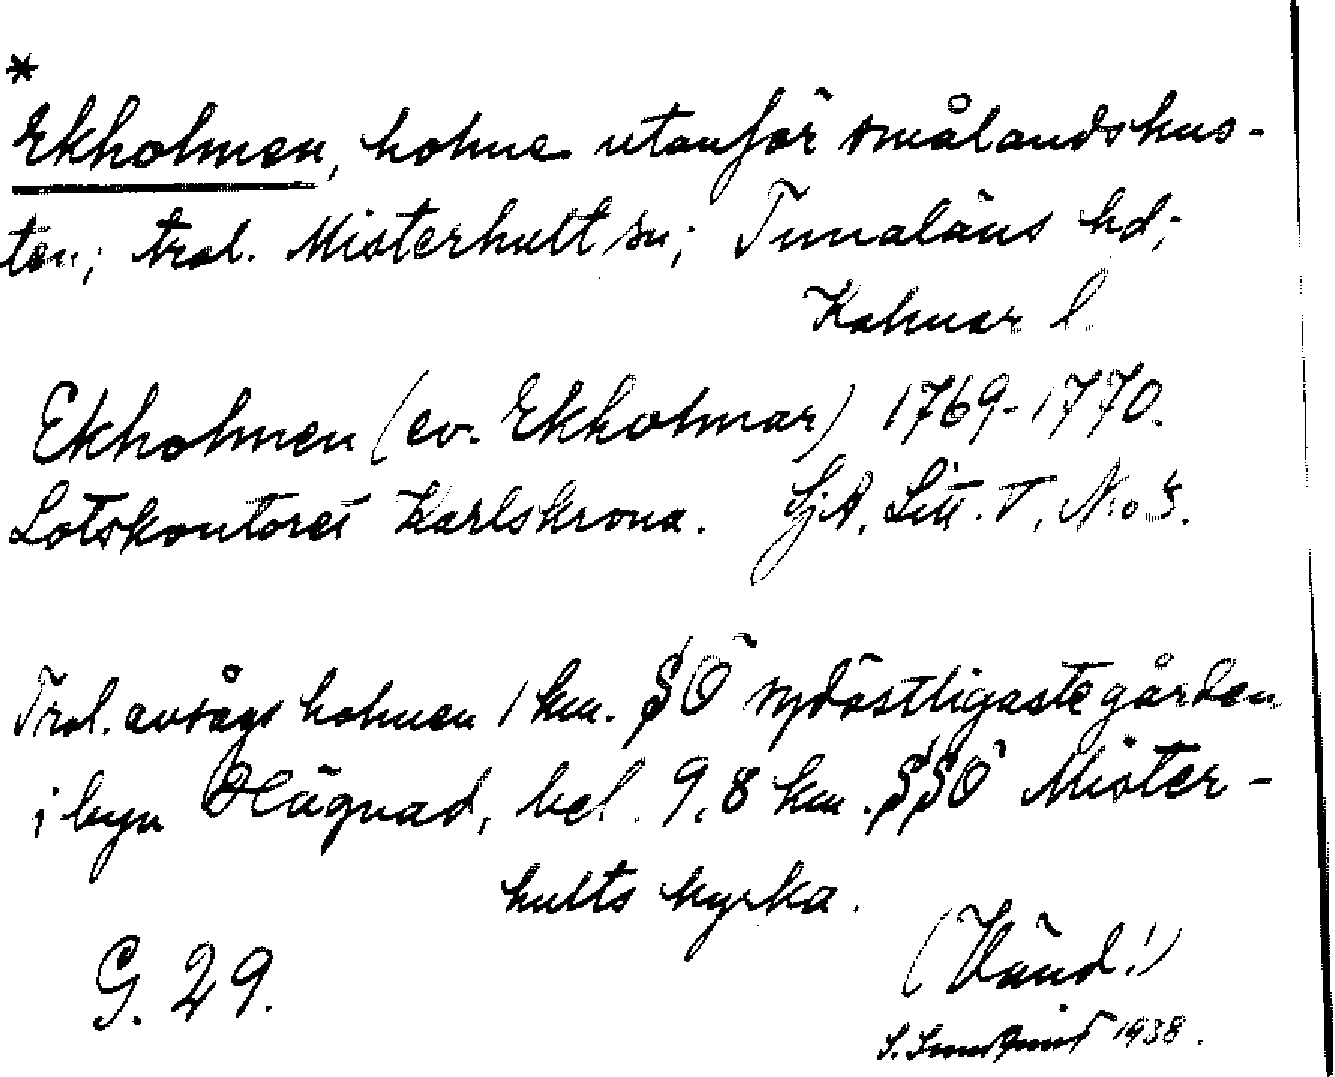 *
Ekholmen, holme utanför smålandskus-
ten; trol. Misterhult sn; Tunaläns hd;
Kalmar l.
Ekholmen (ev. Ekholmar) 1769-1770.
Lotskontoret Karlskrona. SjA, Litt. T, No 3.
Trol. avsågs holmen 1 km. SÖ sydöstligaste gården
i byn Hägnad, bel. 9,8 km. SSÖ Mister-
hults kyrka.
(Vänd!)
G. 29.
S. 1938.